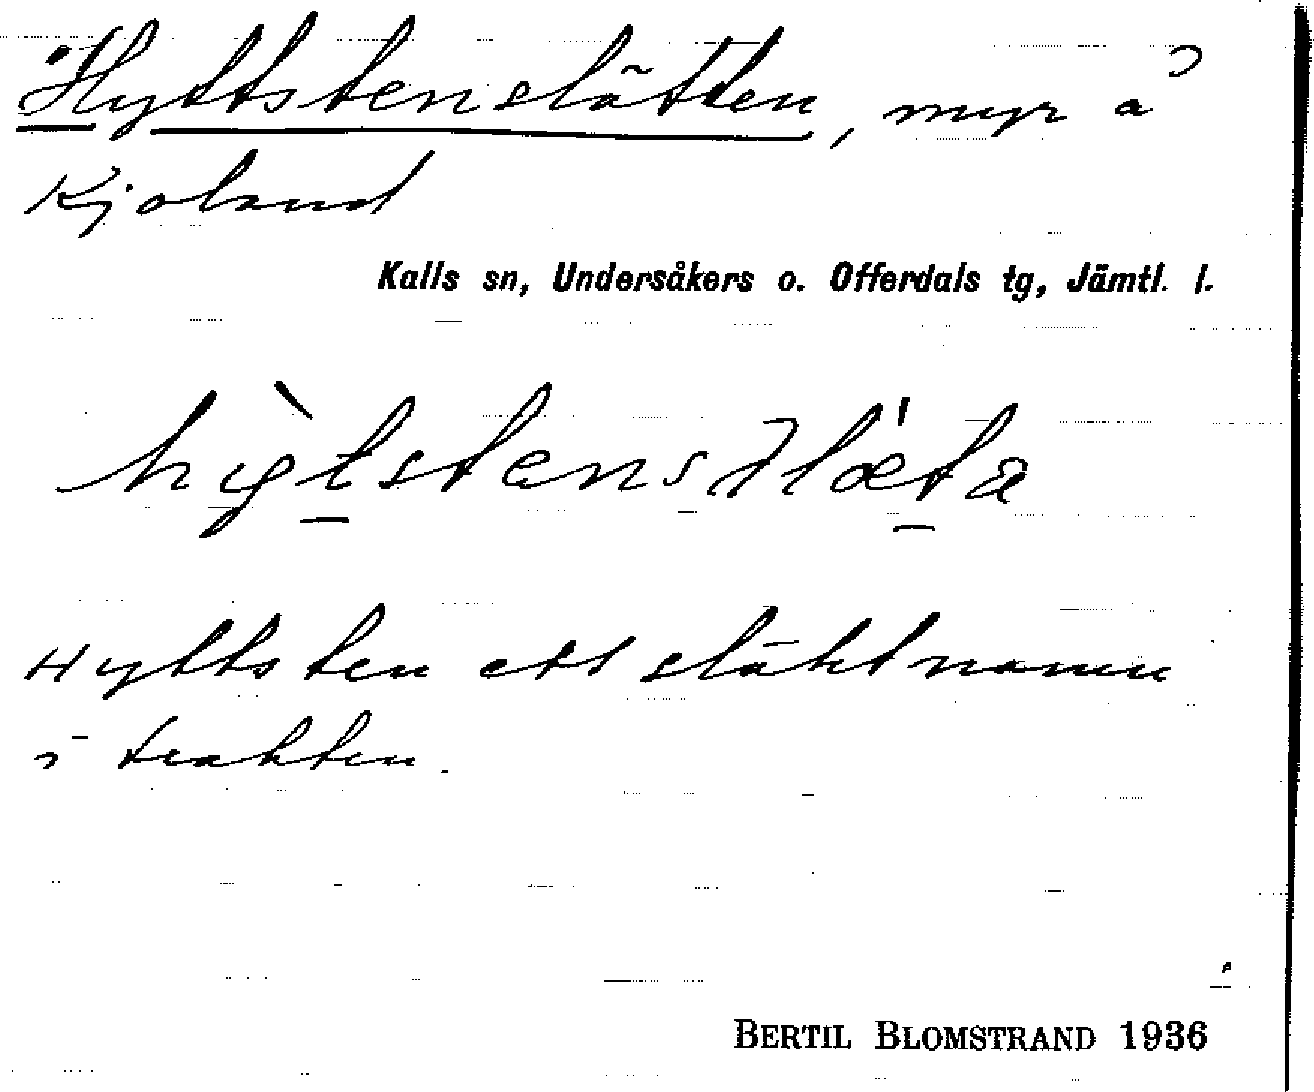 Hyttstenslätten, myr å
Kjoland
Kalls sn, Undersåkers o. Offerdals tg, Jämtl. l.
Hyttsten ett släktnamn
i trakten.
BERTIL BLOMSTRAND 1936